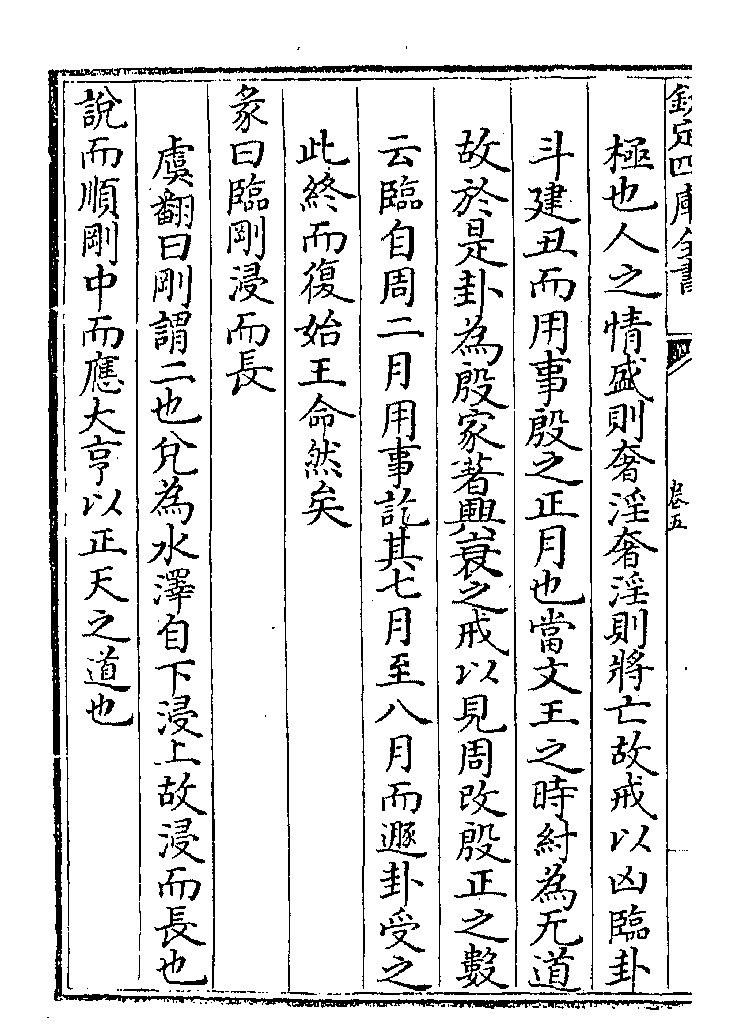 欽定四庫全書
卷五
極也人之情盛則奢淫奢淫則將亡故戒以凶臨卦
斗建丑而用事殷之正月也當文王之時紂為无道
故於是卦為殷家著興衰之戒以見周改殷正之數
云臨自周二月用事訖其七月至八月而遯卦受之
此終而復始王命然矣
彖曰臨剛浸而長
虞翻曰剛謂二也兌為水澤自下浸上故浸而長也
說而順剛中而應大亨以正天之道也